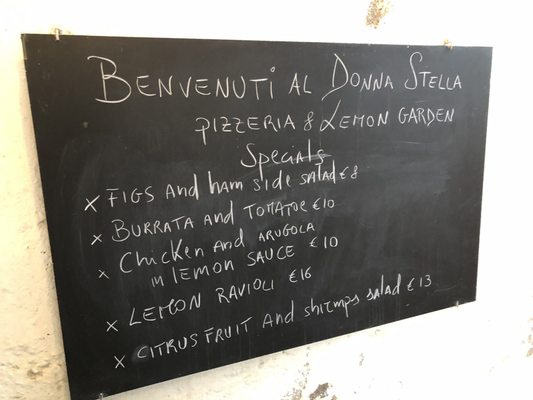 BENVENUTI AL DONNA STELLA
PIZZERIA & LEMON GARDEN
Specials
x FIGS and ham side salad € 8
x BURRATA and TOMATOE €10
x Chicken and ARUGOLA
in LEMON SAUCE €10
x LEMON RAVIOLI €16
x CITRUS FRUIT and shrimps salad € 13